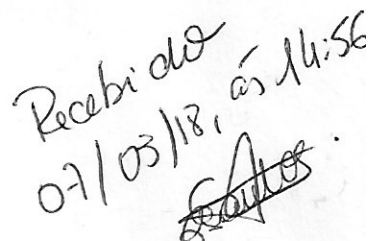 Recebido
07/03/18, às 14:56